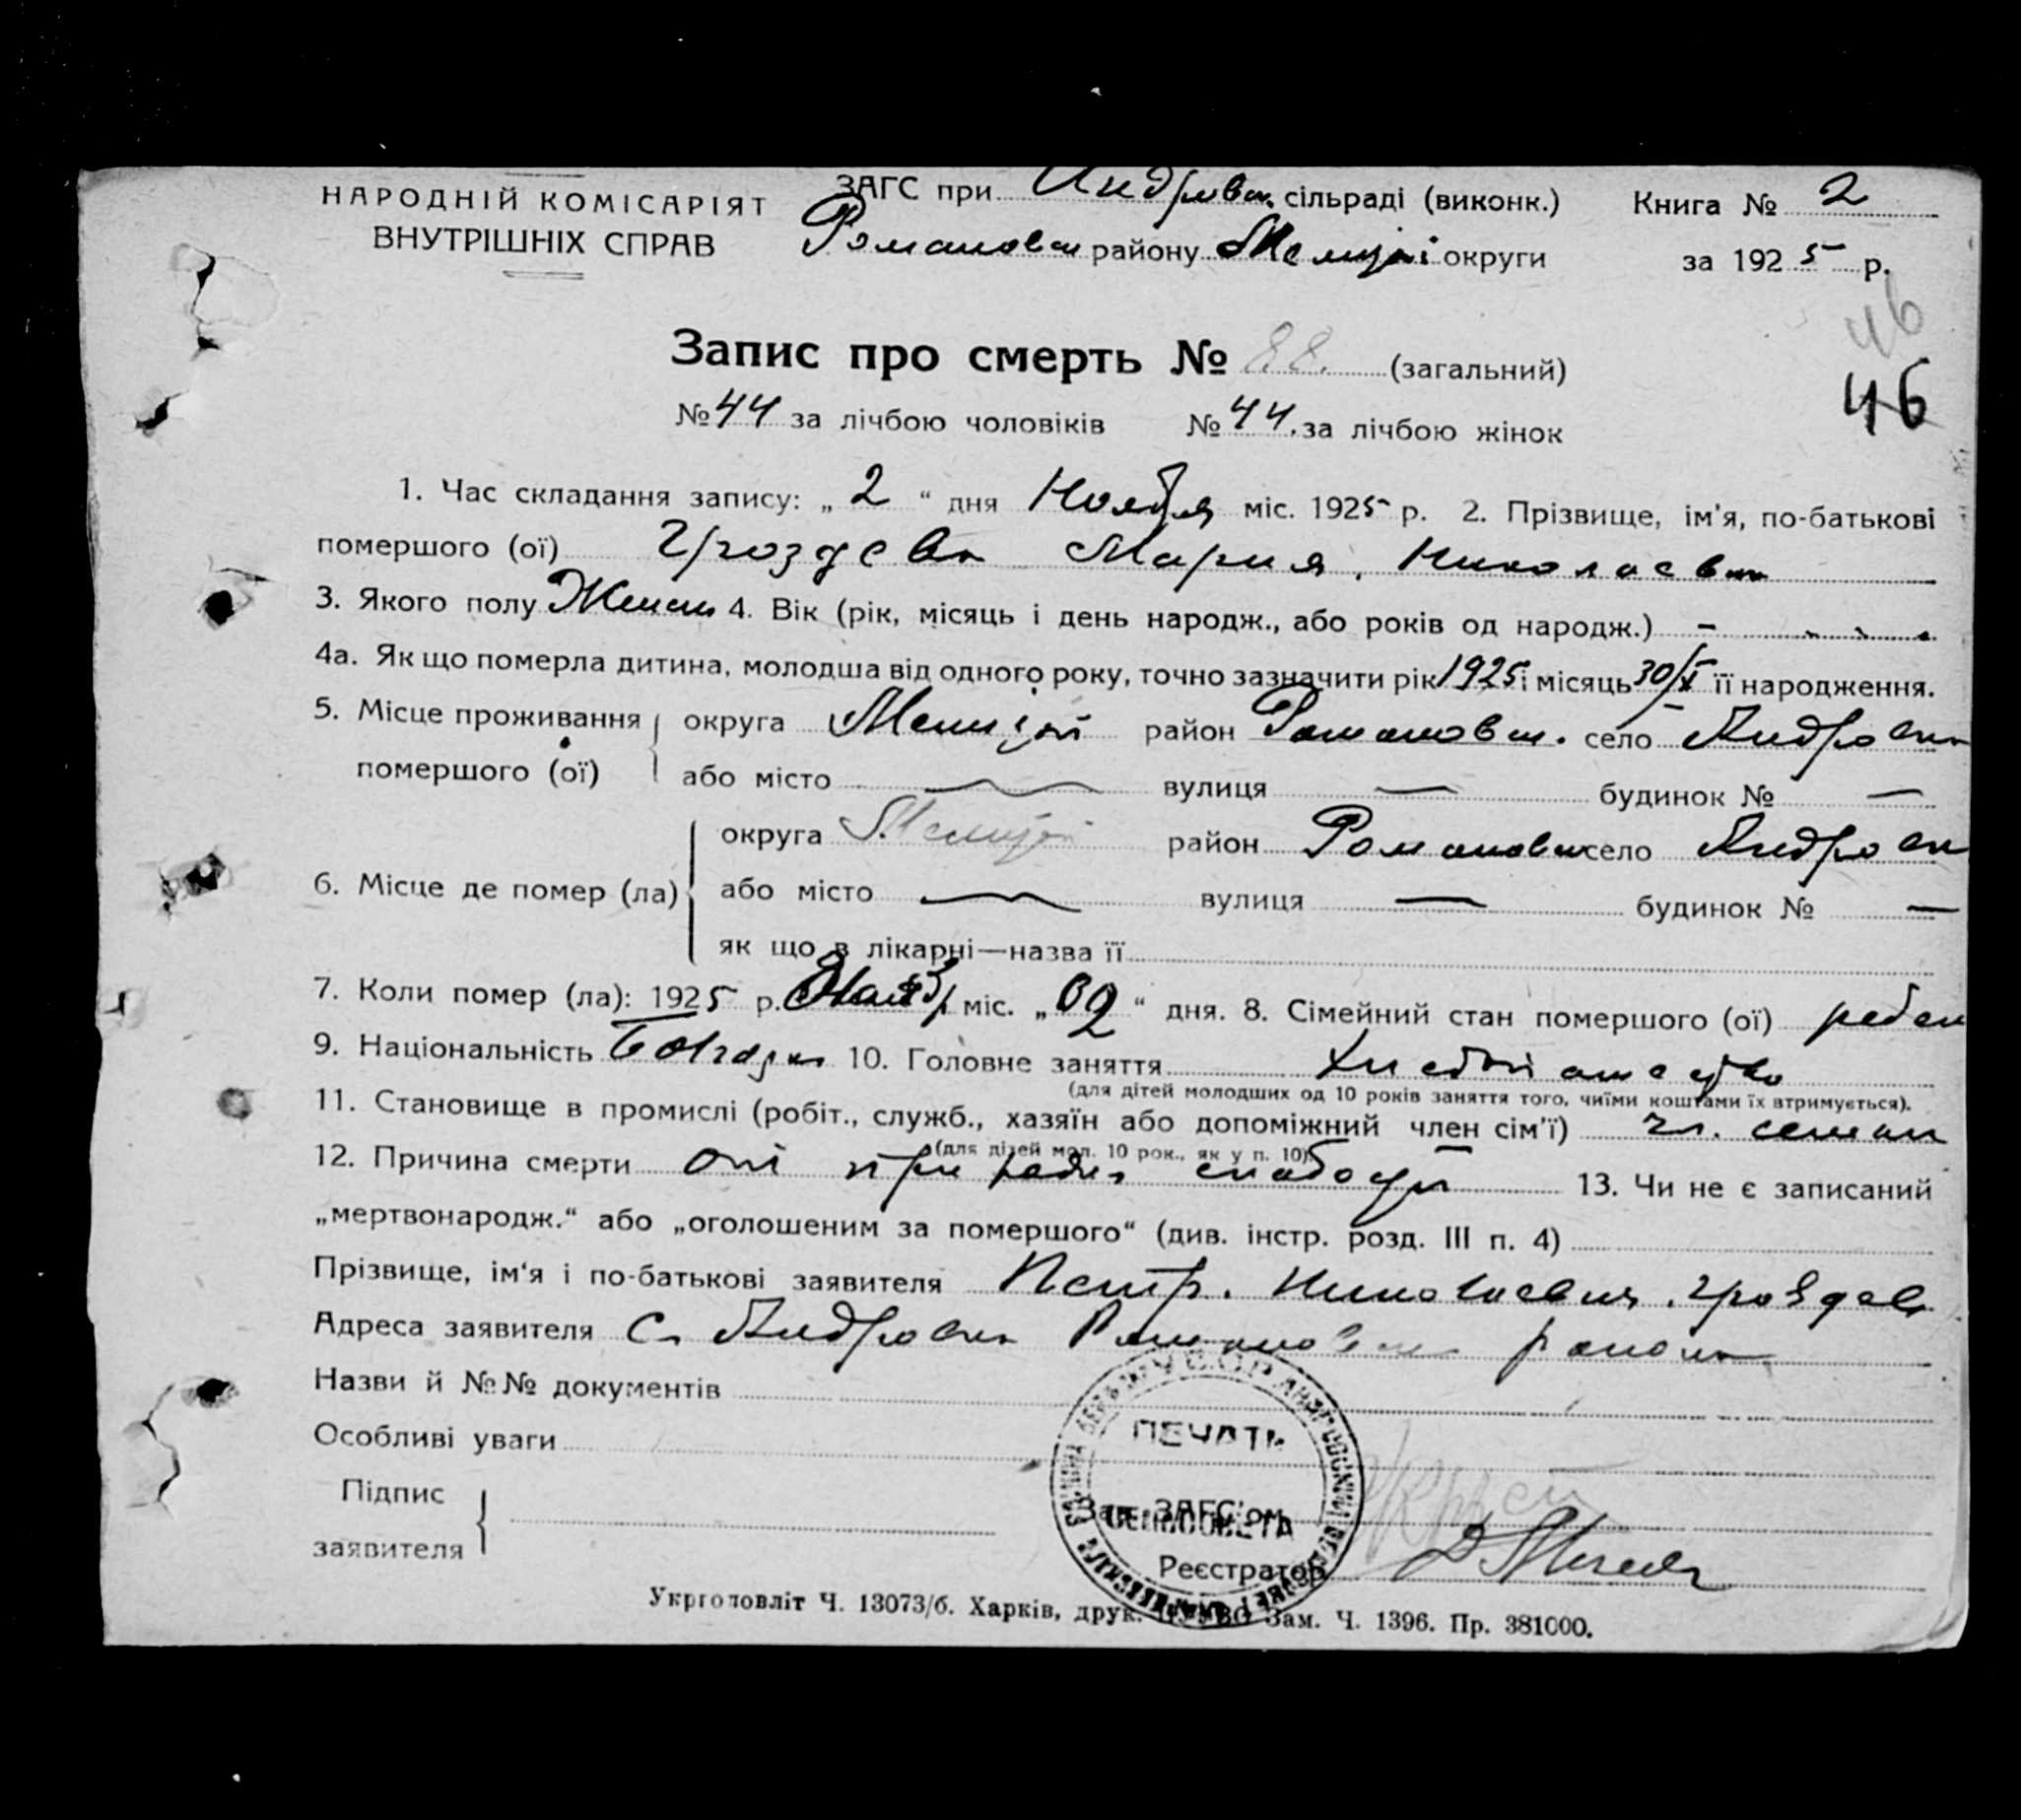 НАРОДНІЙ КОМІСАРІЯТ
ВНУТРІШНІХ СПРАВ
ЗАГС при Андровск. сільраді (виконк.)
Романовск району Меліт округи
Книга № 2
за 1925 р.
46
46
Запис про смерть № 88. (загальний)
№ 44 за лічбою чоловіків № 44. за лічбою жінок
1. Час складання запису: „ 2 “ дня Ноября міс. 1925 р. 2. Прізвище, ім'я, по-батькові
помершого (ої) Гроздева Мария, Николаевна
3. Якого полу Женск 4. Вік (рік, місяць і день народж., або років од народж.) –
4а. Як що померла дитина, молодша від одного року, точно зазначити рік 1925 і місяць 30/X її народження.
5. Місце проживання помершого (ої) округа район Романовск. село Андровка
або місто — вулиця — будинок № —
6. Місце де помер (ла) округа район Романовск село Андровк
або місто — вулиця — будинок № —
як що в лікарні—назва її
7. Коли помер (ла): 1925 р. Нояб міс. „ 02 “ дня. 8. Сімейний стан помершого (ої) ребен
9. Національність Болгарк 10. Головне заняття
(для дітей молодших од 10 років заняття того, чиїми коштами їх втримується).
11. Становище в промислі (робіт., служб., хазяїн або допоміжний член сім'ї) чл. семьи
(для дітей мол. 10 рок., як у п. 10).
12. Причина смерти слабости 13. Чи не є записаний
„мертвонародж.“ або „оголошеним за помершого“ (див. інстр. розд. III п. 4)
Прізвище, ім'я і по-батькові заявителя Петр. Николаевич. Гроздев
Адреса заявителя с. Андровка Романовск района
Назви й №№ документів
Особливі уваги
Підпис
заявителя
ПЕЧАТЬ
СЕЛЬСОВЕТА
Зав. ЗАГС'ом
Реєстратор
Укрголовліт Ч. 13073/б. Харків, друк. Зам. Ч. 1396. Пр. 381000.